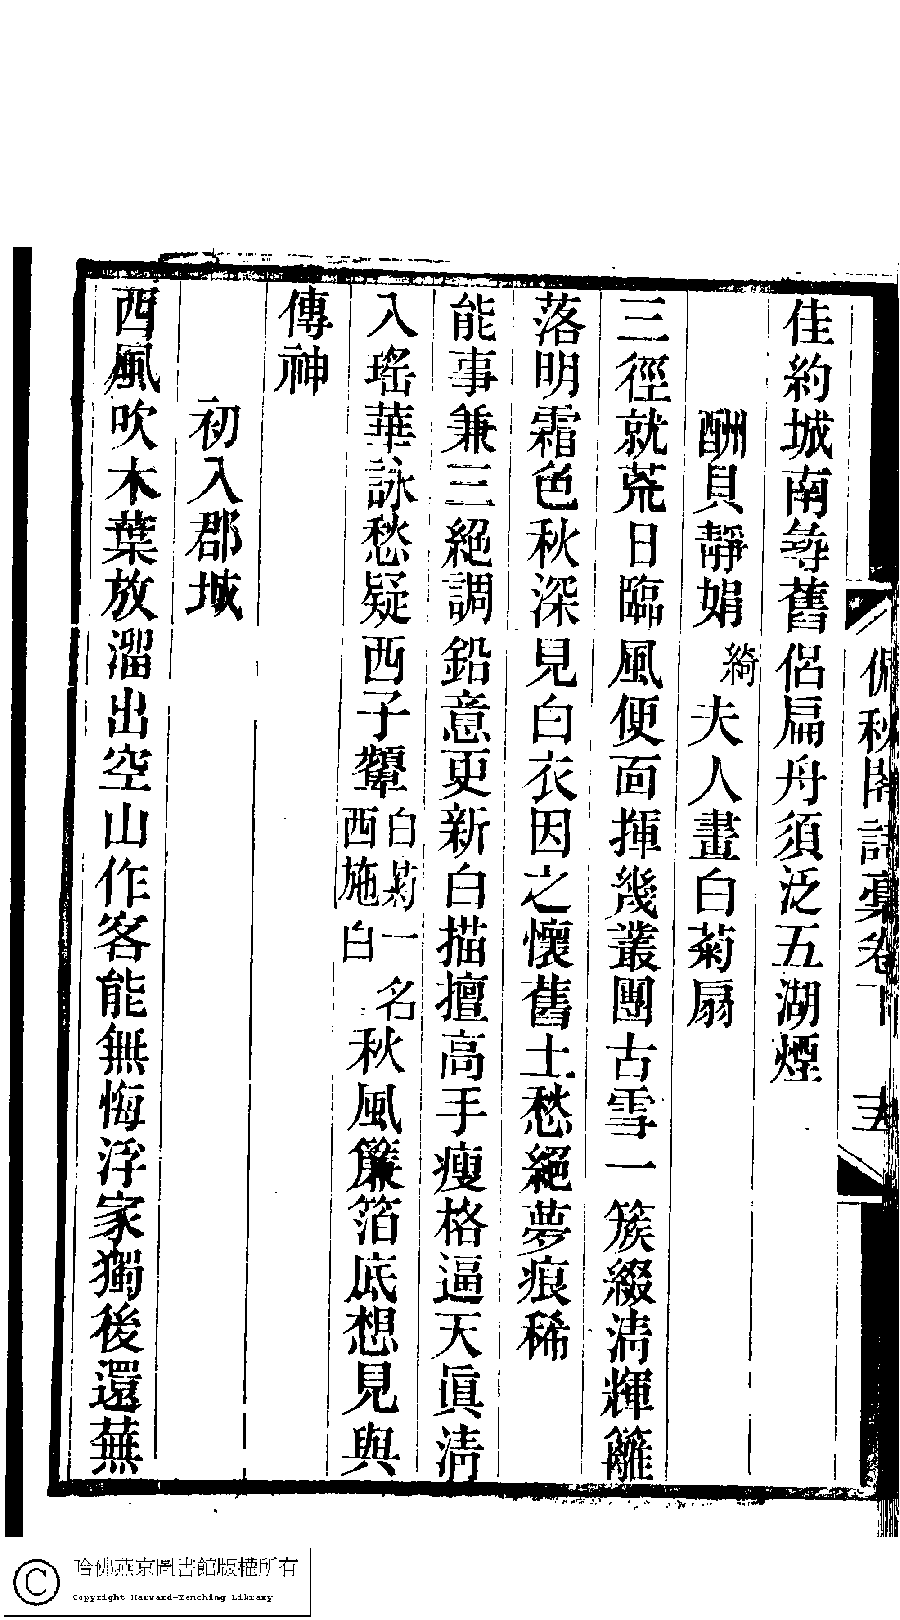 佳約城南尋舊侶扁舟須泛五湖煙
酬貝靜娟綺夫人畫白菊扇
三徑就荒日臨風便面揮幾叢團古雪一簇綴淸輝籬
落明霜色秋深見白衣因之懷舊土愁絕夢痕稀
能事兼三絕調鉛意更新白描擅高手瘦格逼天眞淸
入瑤華詠愁疑西子顰白菊一名西施白秋風簾箔底想見與
傳神
初入郡城
西風吹木葉放溜出空山作客能無悔浮家獨後還蕪
秋閣詩稾卷下
哈佛燕京圖書館版權所有
Copyright Harvard-Yenching Library